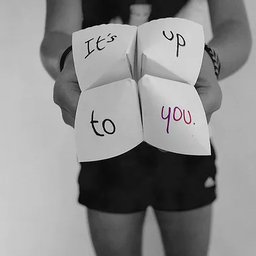 It's up
to you.